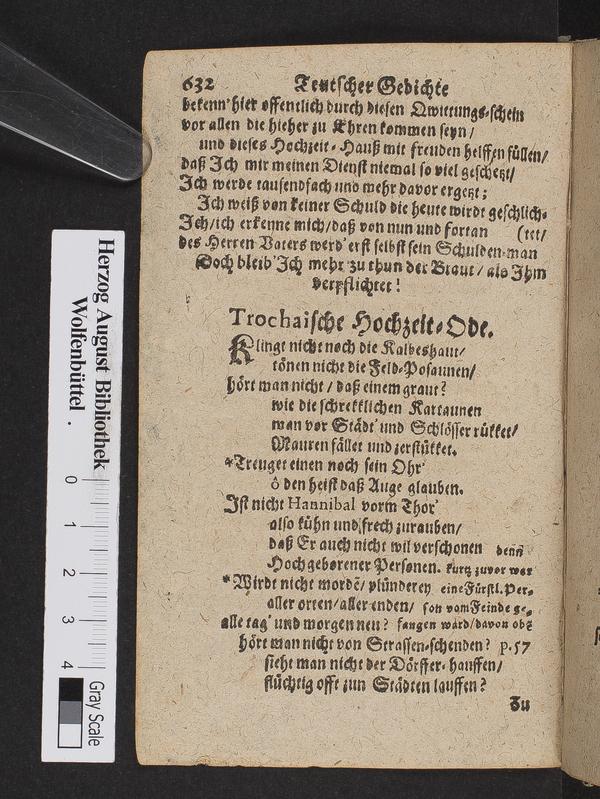 632 Teutscher Gedichte
bekenn' hier offentlich durch diesen Qwittungs-schein
vor allen die hieher zu Ehren kommen seyn/
und dieses Hochzeit-Hauß mit freuden helffen füllen/
daß Ich mir meinen Dienst niemal so viel geschetzt/
Ich werde tausendfach und mehr davor ergetzt;
Ich weiß von keiner Schuld die heute wirdt geschlich-
Ich/ich erkenne mich/daß von nun und fortan (tet/
des Herren Vaters werd' erst selbst sein Schulden-man
Doch bleib' Ich mehr zu thun der Braut/ als Ihm
verpflichtet!
Trochaische Hochzeit-Ode.
Klingt nicht noch die Kalbeshaut/
tönen nicht die Feld-Posaunen/
hört man nicht/ daß einem graut?
wie die schrekklichen Kartaunen
man vor Städt' und Schlösser rükket/
Mauren fället und zerstükket.
*Treuget einen noch sein Ohr'
ô den heist daß Auge glauben.
Ist nicht Hannibal vorm Thor'
also kühn und frech zurauben/
daß Er auch nicht wil verschonen denn
Hochgeborener Personen. kurtz zuvor war
*Wirdt nicht mordē/ plünderey eine Fürstl. Per-
aller orten/aller enden/ son vom Feinde ge-
alle tag' und morgen neu? fangen ward/davon obē
hört man nicht von Strassen-schenden? p. 57
sieht man nicht der Dörffer-hauffen/
flüchtig offt zun Städten lauffen?
Zu
Herzog August Bibliothek
Wolfenbüttel .
0 1 2 3 4
Gray Scale